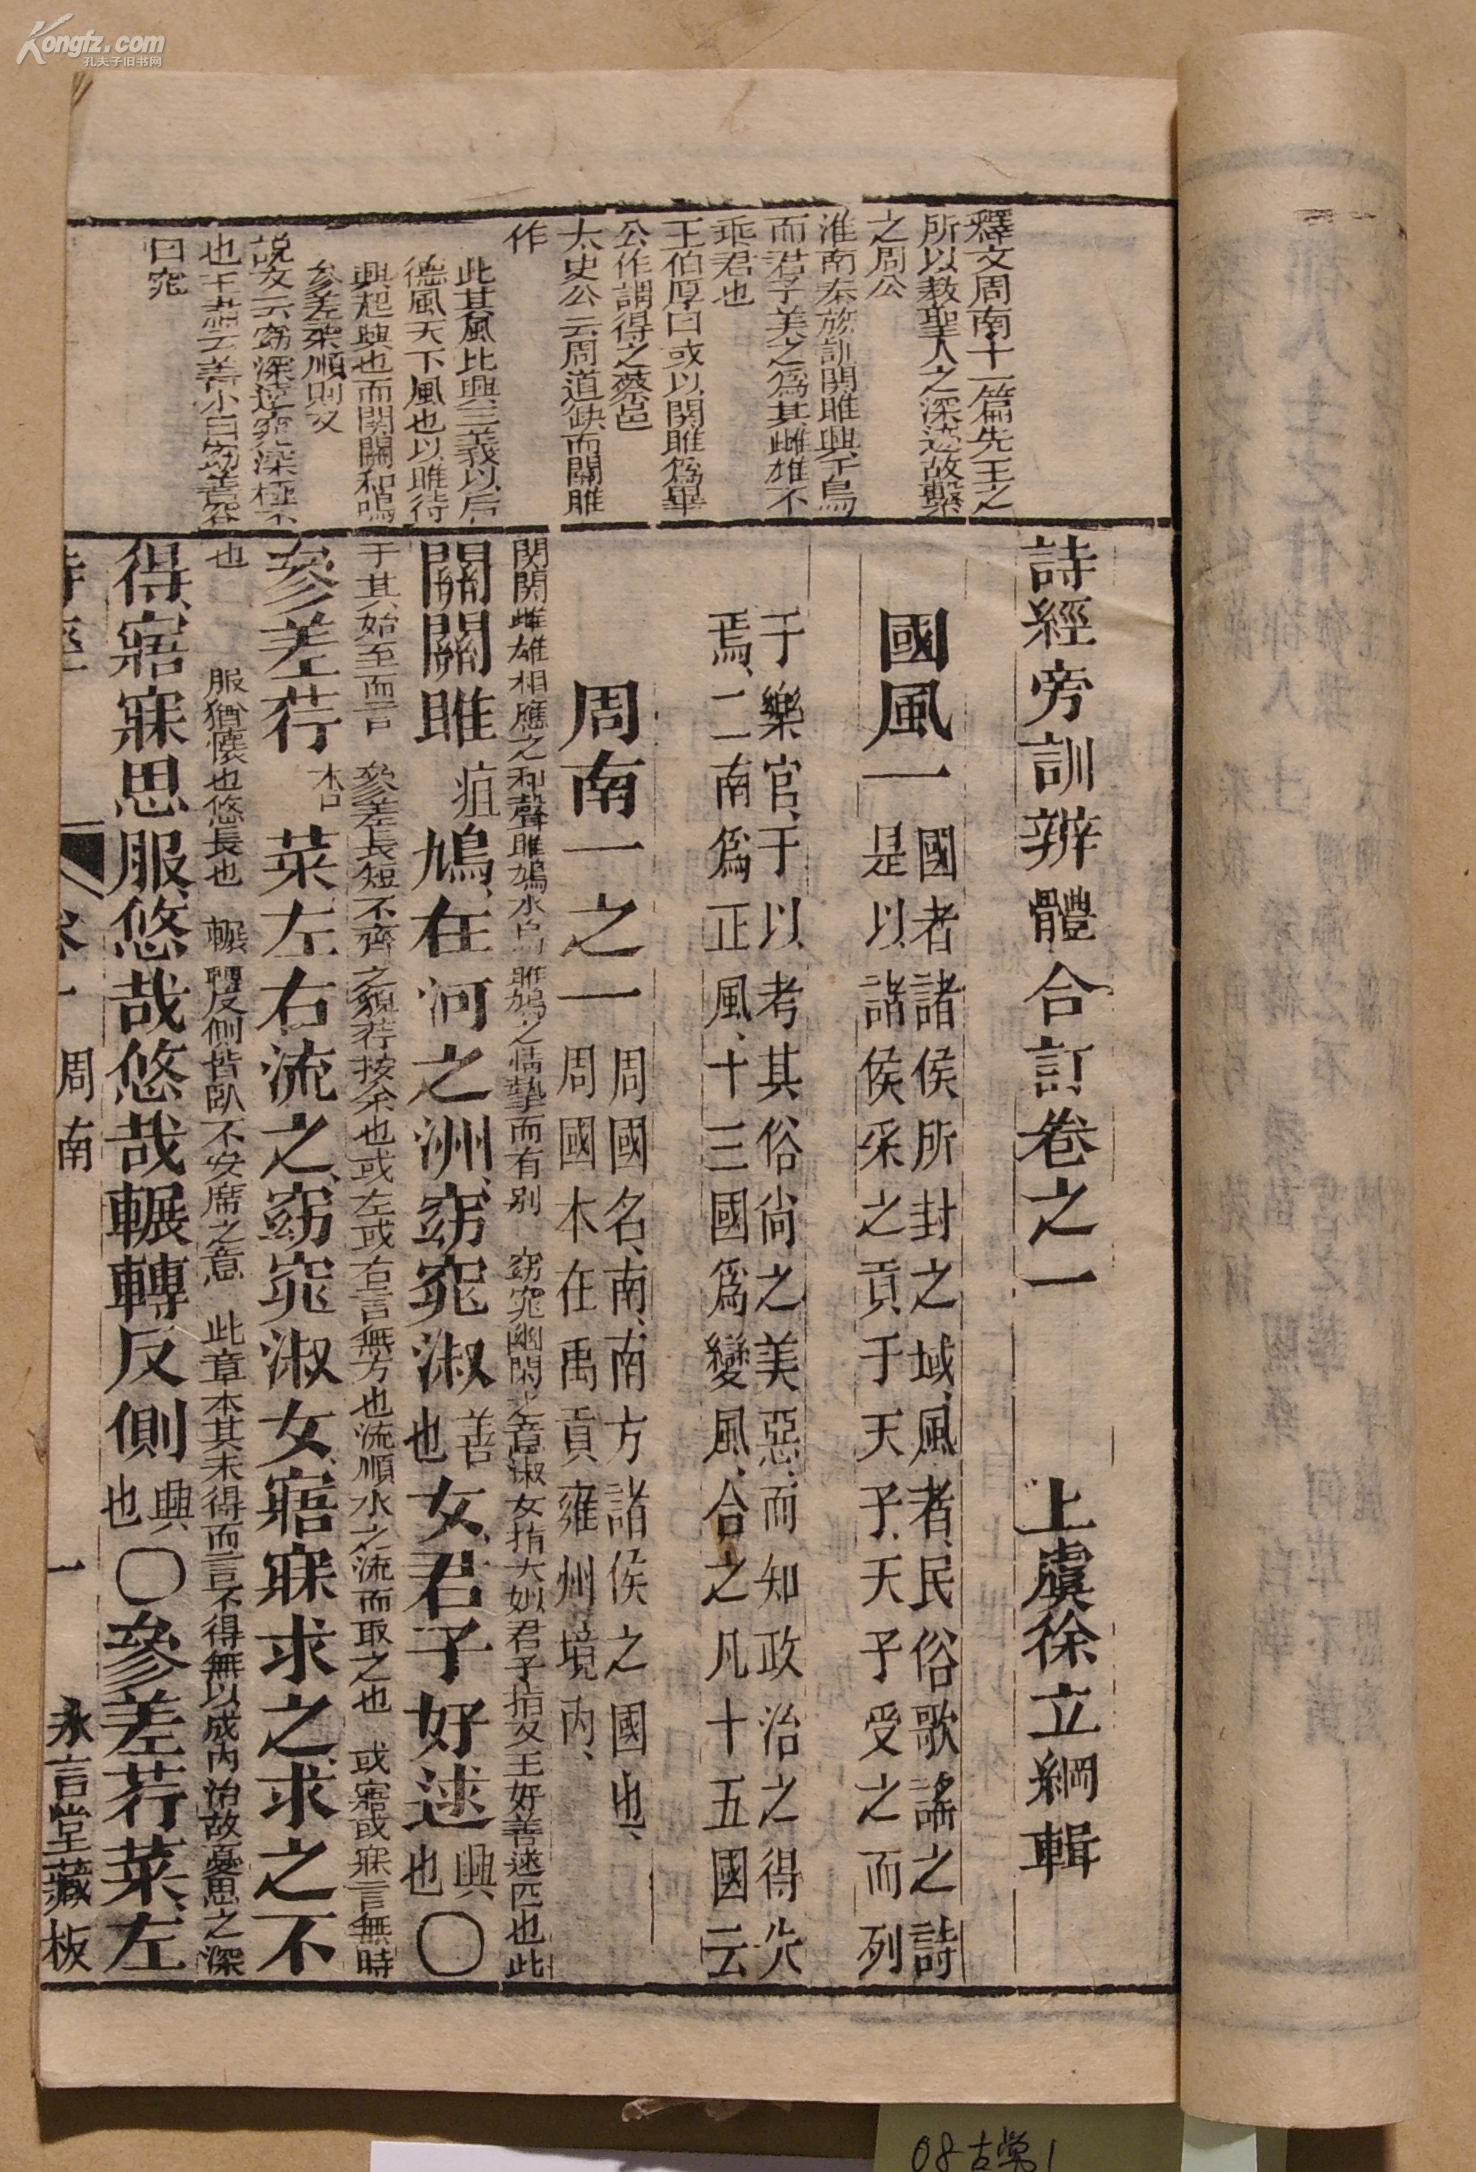 Kongfz.com
孔夫子旧书网
釋文周南十一篇先王之
所以教聖人之深迹故繫
之周公
淮南泰族訓關雎興于鳥
而君子美之爲其雌雄不
乖君也
王伯厚曰或以關雎爲畢
公作謂得之蔡邕
太史公云周道缺而關雎
作
此其風比興三義以后
德風天下風也以雎待
興起興也而関關和鳴
參差柔順則又
說文云窈深遠窕深極
也王肅云善心曰窈善容
曰窕
詩經旁訓辨體合訂卷之一
上虞徐立綱輯
國風一
國者諸侯所封之域風者民俗歌謠之詩
是以諸侯采之貢于天子天子受之而列
于樂官于以考其俗尚之美惡而知政治之得失
焉二南爲正風十三國爲變風合之凡十五國云
周南一之一
周國名南南方諸侯之國也
周國本在禹貢雍州境內
関関雌雄相應之和聲雎鳩水鳥雎鳩之情摯而有別 窈窕幽閑之意淑女指大姒君子指文王好善逑匹也此
關關雎疽鳩在河之洲窈窕淑善也女君子好逑興也〇
于其始至而言 參差長短不齊之貌荇接余也或左或右言無方也流順水之流而取之也 或寤或寐言無時
參差荇杏菜左右流之窈窕淑女寤寐求之求之不
也 服猶懷也悠長也 輾轉反側皆臥不安席之意 此章本其未得而言不得無以成內治故憂思之深
得寤寐思服悠哉悠哉輾轉反側興也〇參差荇菜左
周南
一
永言堂藏板
08古党1